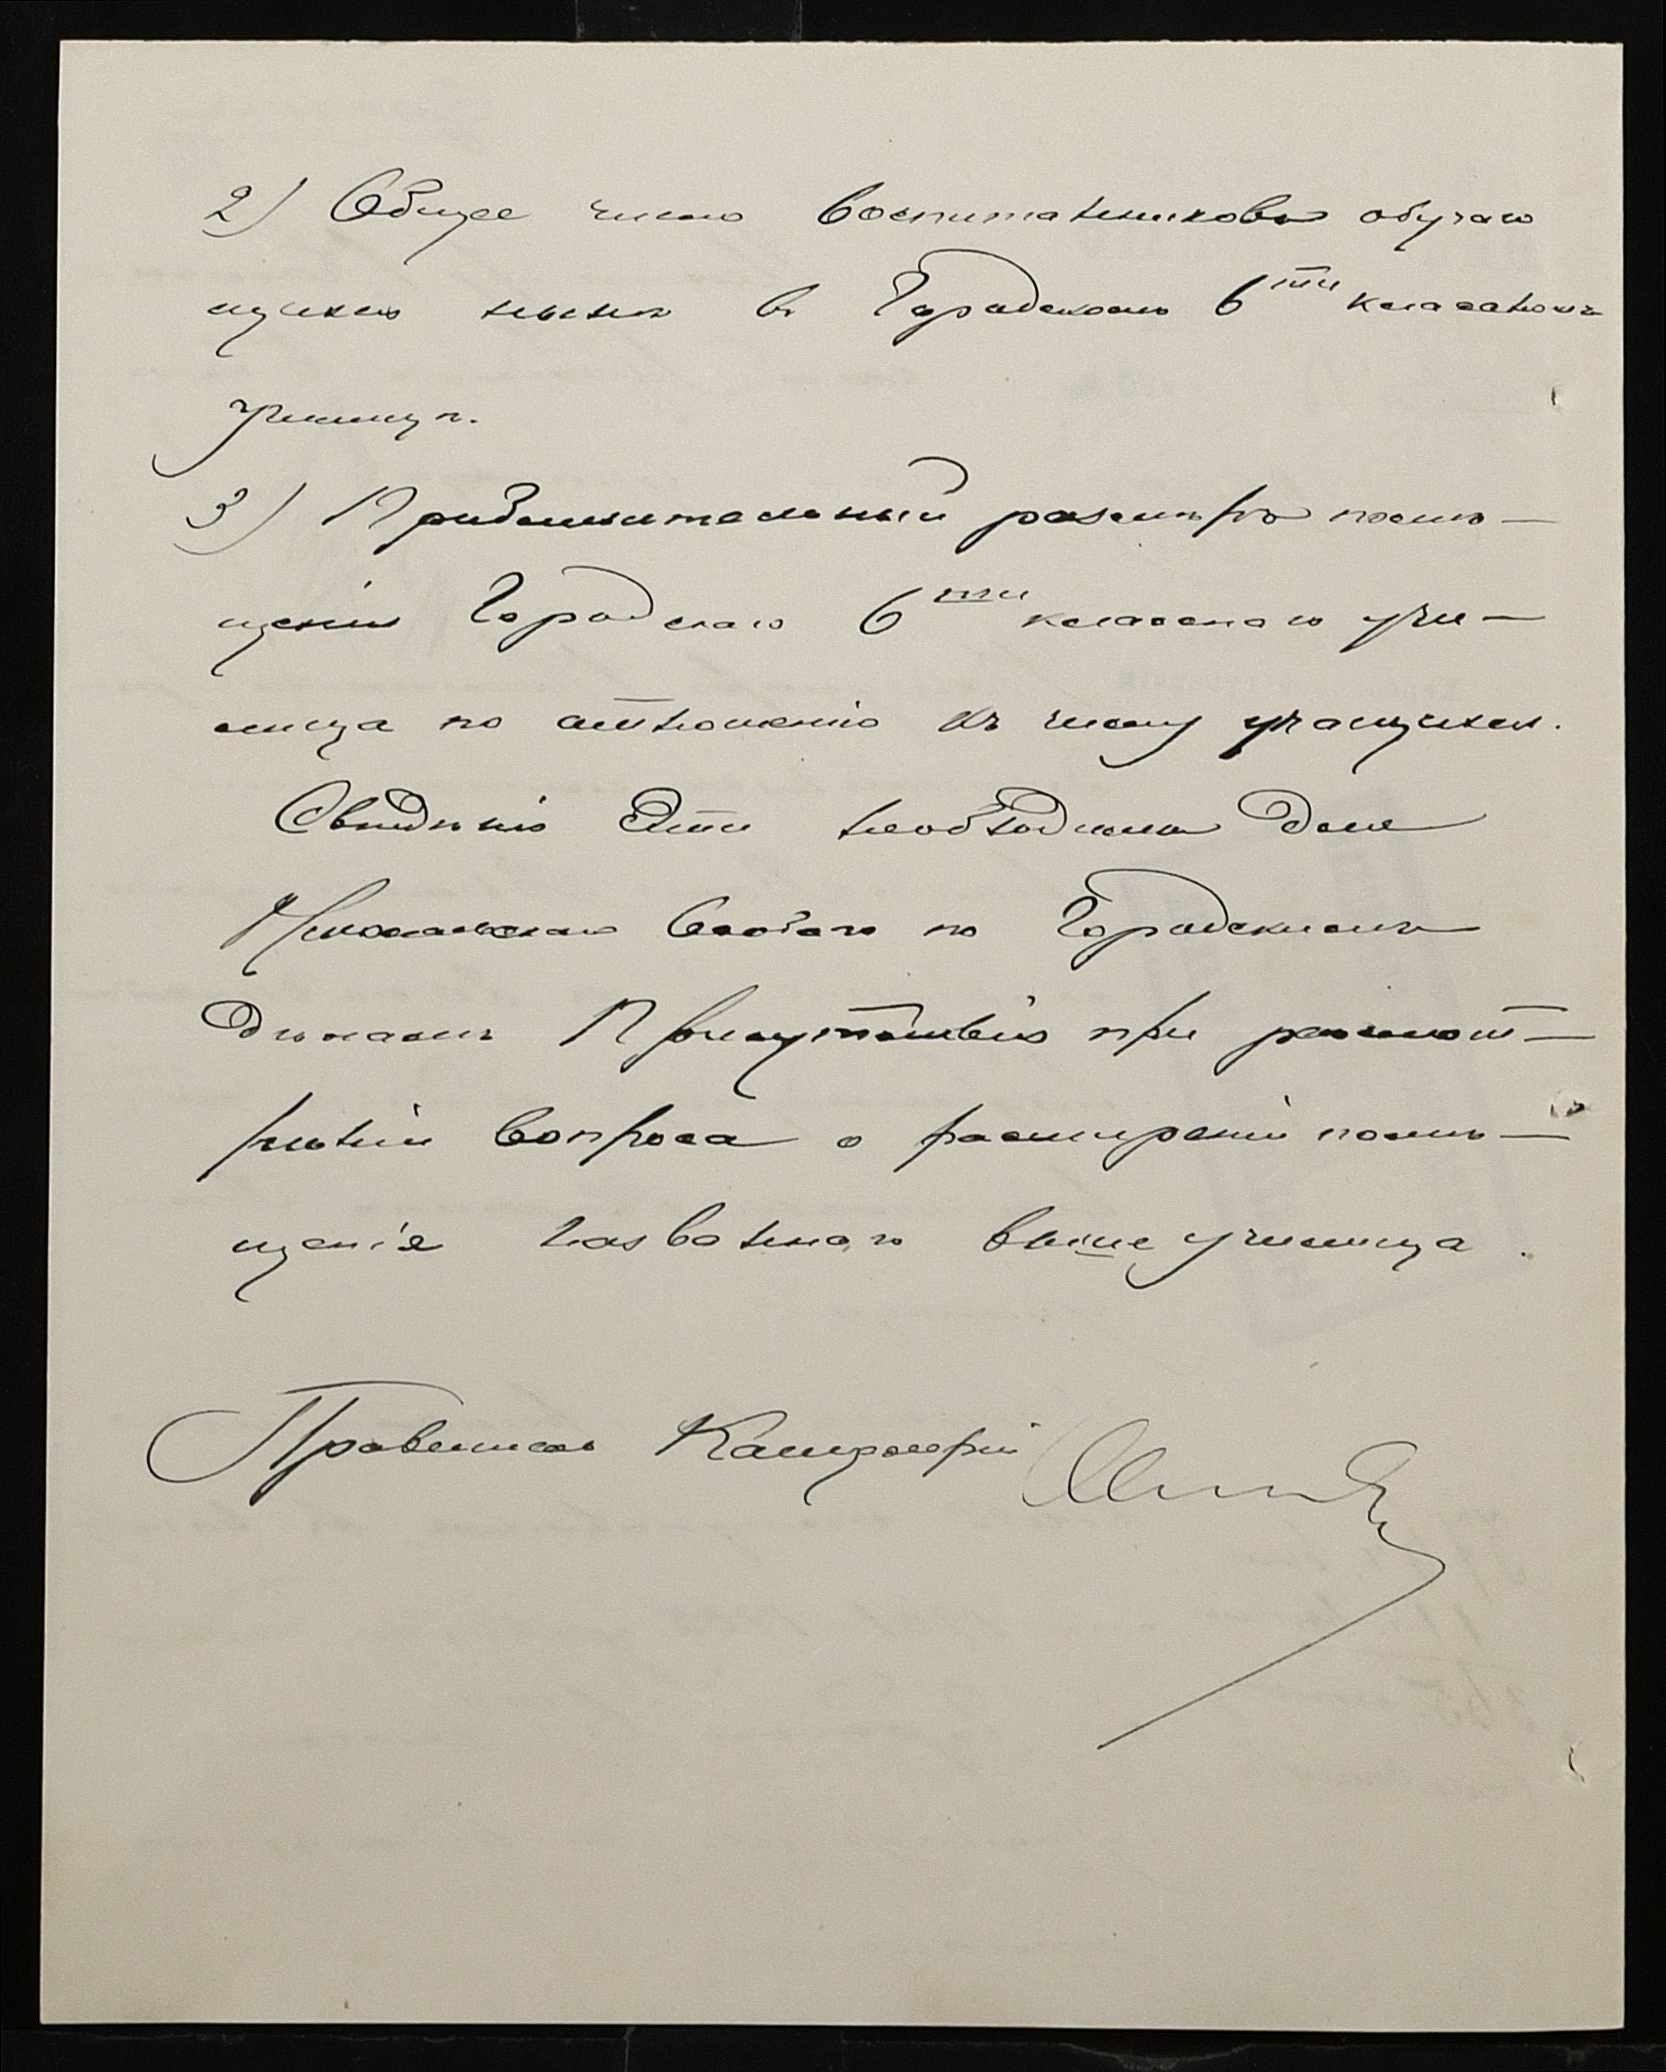 2) Общее число воспитанниковъ обучаю
щихся нынѣ въ Городскомъ 6ти классномъ
училищѣ.
3) Приблизительный размѣръ помѣ—
щенія Городскаго 6ти класснаго учи—
лища по отношенію къ числу учащихся.
Свѣдѣнія эти необходимы для
Николаевскаго Особаго по Городскимъ
Дѣламъ Присутствія при разсмот—
рѣніи вопроса о расширеніи помѣ—
щенія названнаго выше училища.
Правитель Канцеляріи